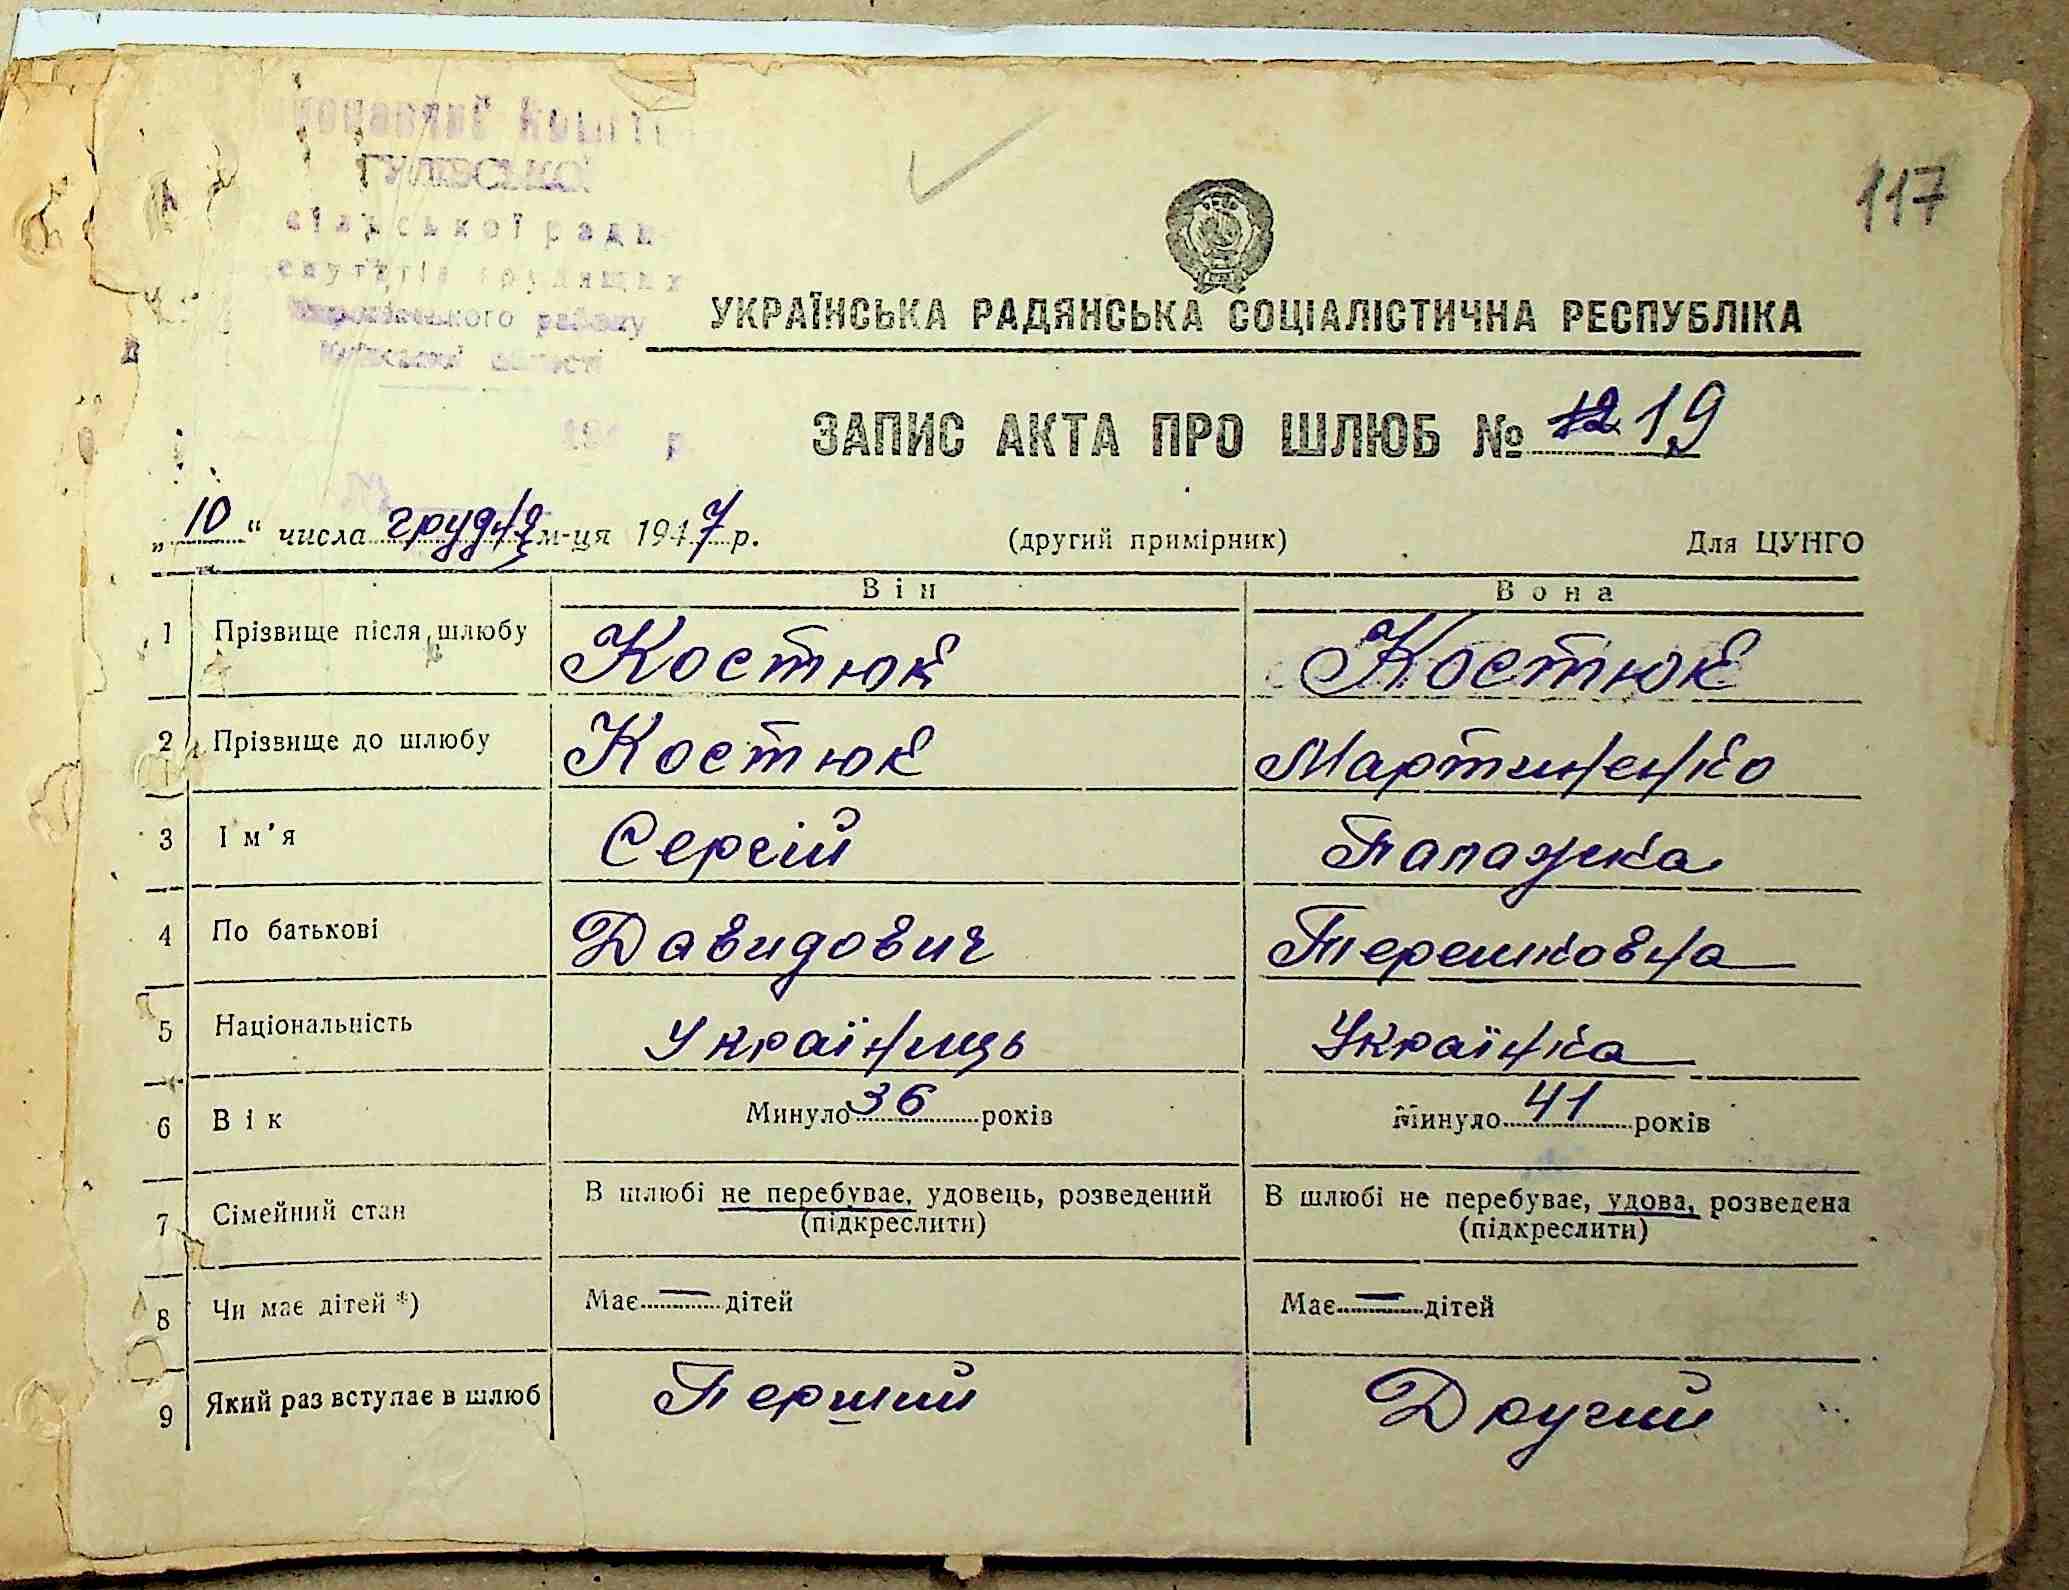 ГУЛІВСЬКОЇ
сільської ради
районy
Київської області
117
УКРАЇНСЬКА РАДЯНСЬКА СОЦІАЛІСТИЧНА РЕСПУБЛІКА
ЗАПИС АКТА ПРО ШЛЮБ № 12 19
„10“ числа грудня м-ця 1947 р. (другий примірник) Для ЦУНГО
Він Вона
1 Прізвище після шлюбу Костюк Костюк
2 Прізвище до шлюбу Костюк Мартиненко
3 Ім’я Сергій Палажка
4 По батькові Давидович Терешковна
5 Національність Українець Українка
6 Вік Минуло 36 років Минуло 41 років
7 Сімейний стан В шлюбі не перебуває, удовець, розведений В шлюбі не перебуває, удова, розведена
(підкреслити) (підкреслити)
8 Чи має дітей *) Має — дітей Має — дітей
9 Який раз вступає в шлюб Перший Другий